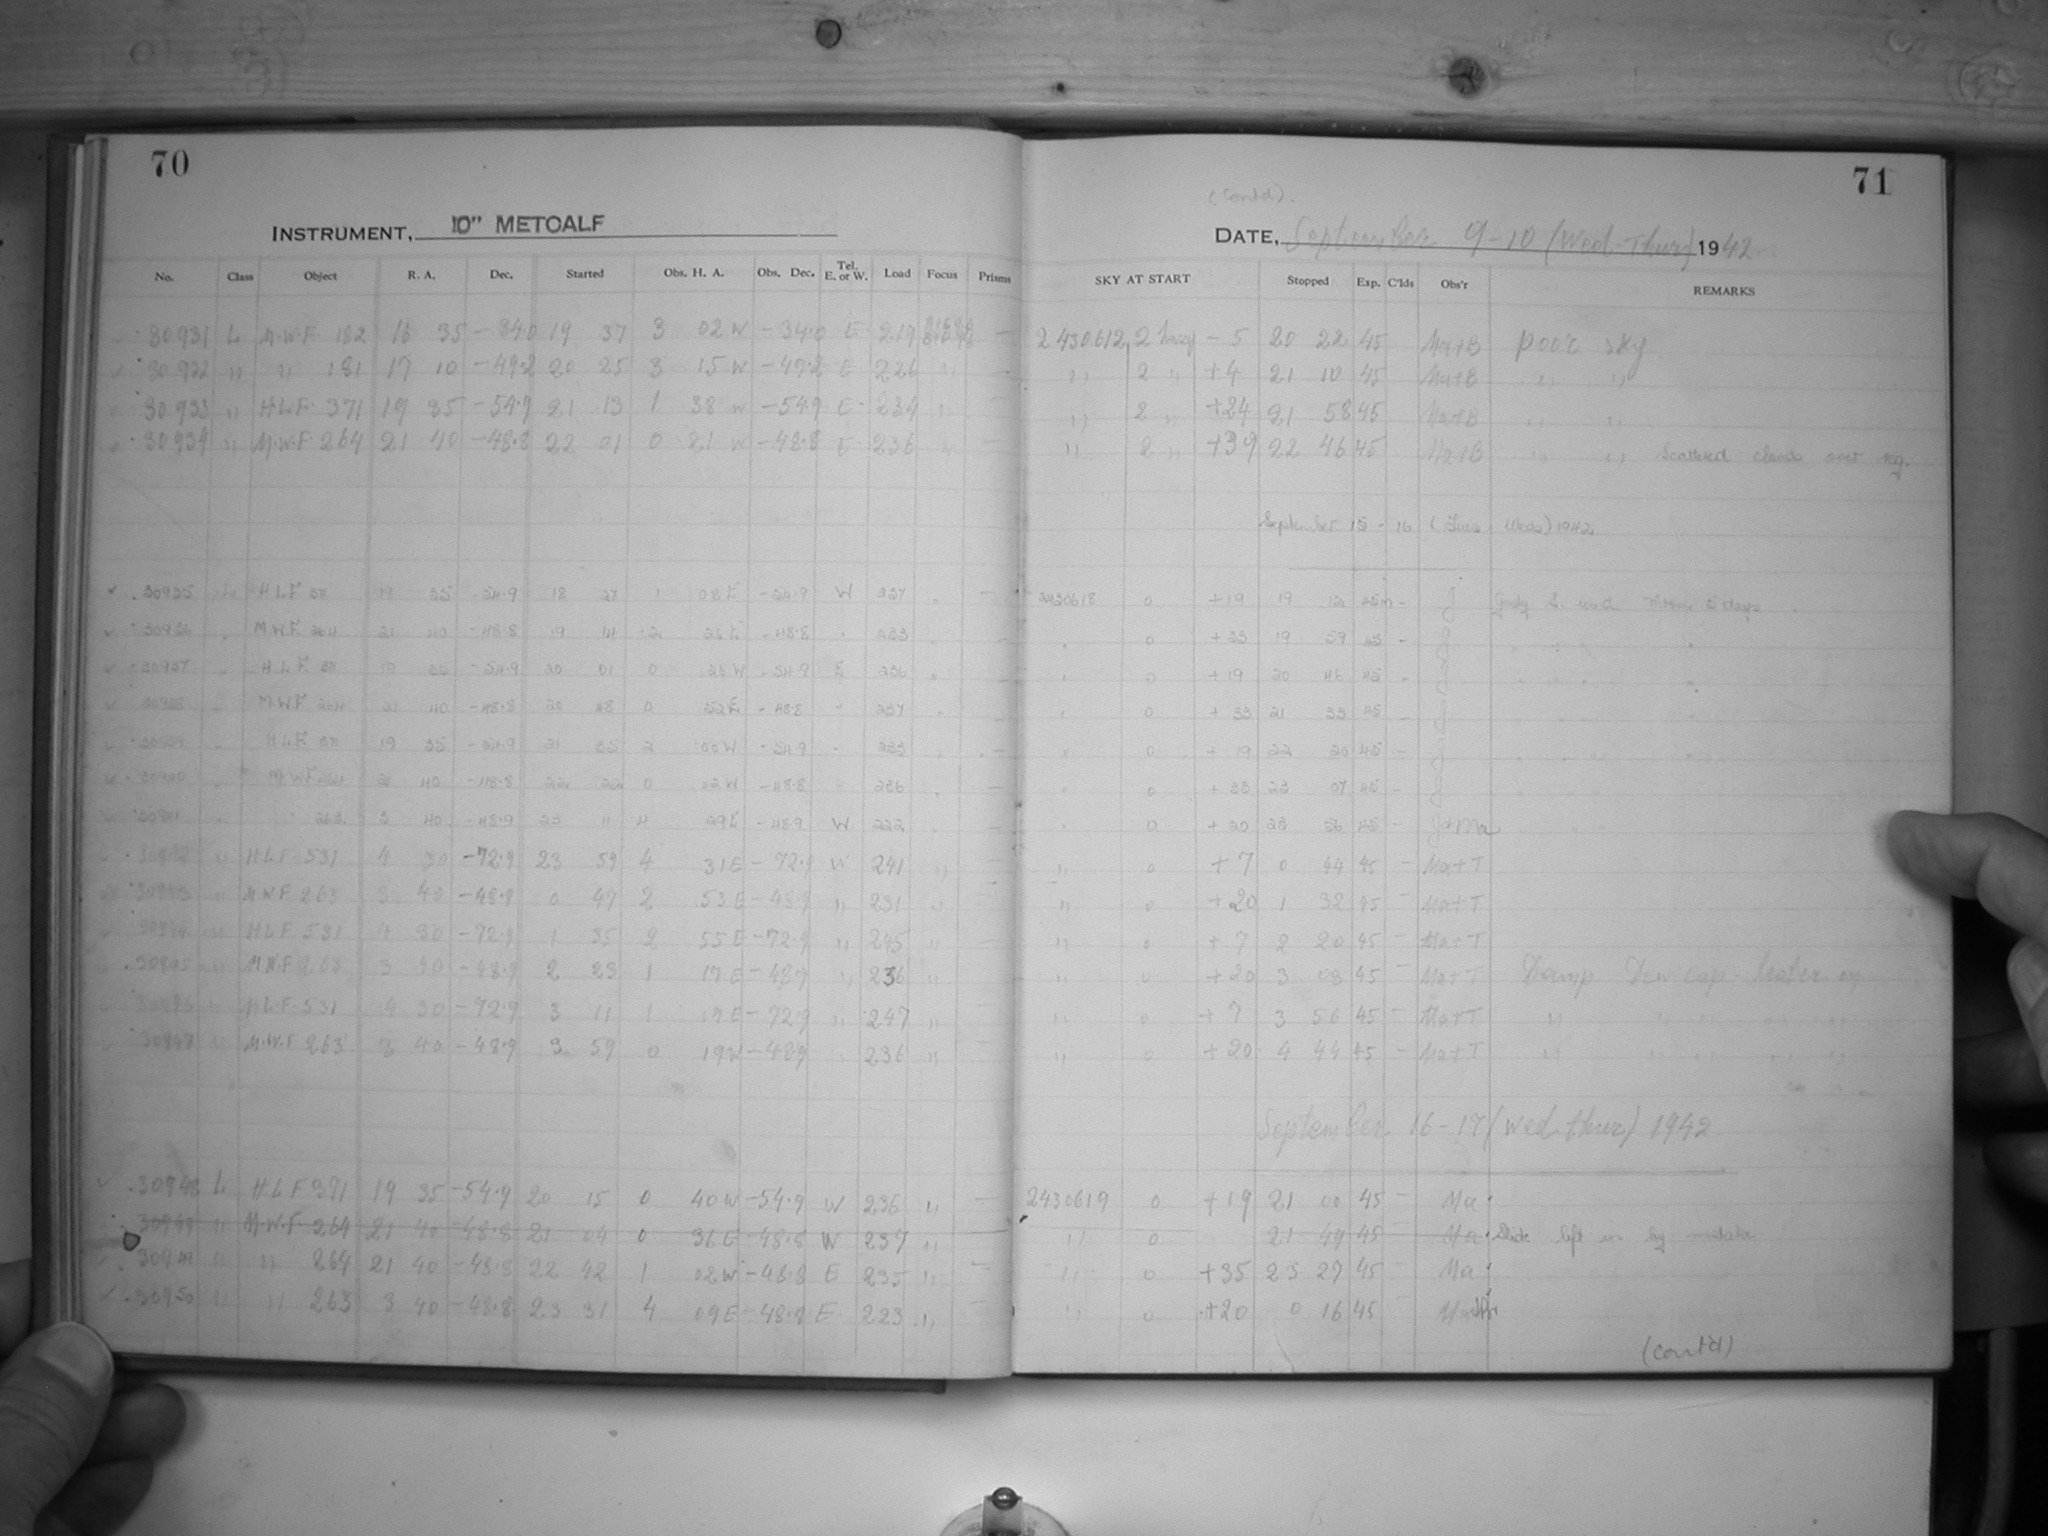 70
INSTRUMENT, 10" METCALF
No. Class Object R. A. Dec. Started Obs. H. A. Obs. Dec. Tel. E. or W. Load Focus Prisms
30931 L M.W.F. 182 16 35 -34.0 19 37 3 02 W -34.0 E 219 —
30932 " " 181 17 10 -49.2 20 25 3 15 W -49.2 E 226 "
30933 " H.L.F. 371 19 35 -54.9 21 13 1 38 W -54.9 E 234 "
30934 " M.W.F. 264 21 40 -48.8 22 01 0 21 W -48.8 E 236 "
30935 L H L F 371 19 35 -54.9 18 27 1 08 E -54.9 W 237 " —
30936 " M W F 264 21 40 -48.8 19 14 2 26 E -48.8 " 233 "
30937 " H L F 371 19 35 -54.9 20 01 0 26 W -54.9 E 236 "
30938 " M W F 264 21 40 -48.8 20 48 0 52 E -48.8 " 237 "
30939 " H L F 371 19 35 -54.9 21 35 2 00 W -54.9 " 233 " —
30940 " M W F 264 21 40 -48.8 22 22 0 42 W -48.8 236 " —
30941 " " 263 3 40 -48.9 23 11 4 29 E -48.9 W 222 —
30942 " H L F 531 4 30 -72.9 23 59 4 31 E -72.9 W 241 "
30943 " M W F 263 3 40 -48.9 0 47 2 53 E -48.9 " 231 "
30944 " H L F 531 4 30 -72.9 1 35 2 55 E -72.9 " 245 "
30945 " M W F 263 3 40 -48.9 2 23 1 17 E -48.9 " 236 "
30946 " H L F 531 4 30 -72.9 3 11 1 19 E -72.9 " 247 "
30947 " M.W.F 263 3 40 -48.9 3 59 0 19 W -48.9 " 236 "
30948 L H L F 371 19 35 -54.9 20 15 0 40 W -54.9 W 236 " —
30949 " M.W.F. 264 21 40 -48.8 21 04 0 36 E -48.8 W 237 " —
30949 " " 264 21 40 -48.8 22 42 1 02 W -48.8 E 235 " —
30950 " " 263 3 40 -48.8 23 31 4 09 E -48.8 E 223 " —
71
(Contd).
DATE, September 9-10 (Wed-Thur) 1942
SKY AT START Stopped Exp. C'lds Obs'r REMARKS
2430612 2 hazy -5 20 22 45 Ma+B poor sky
" 2 " +4 21 10 45 Ma+B " "
" 2 " +24 21 58 45 Ma+B " "
" 2 " +39 22 46 45 Ma+B " " Scattered clouds over
September 15 - 16 (Tues - Weds) 1942
2430618 0 +19 19 12 45m - J
" 0 +33 19 59 45 - J
" 0 +19 20 46 45 - J
" 0 +33 21 33 45 J
" 0 +19 22 20 45 - J
" 0 +33 23 07 45 - J
" 0 +20 23 56 45 - J+Ma
" 0 +7 0 44 45 - Ma+T
" 0 +20 1 32 45 - Ma+T
" 0 +7 2 20 45 - Ma+T
" 0 +20 3 08 45 - Ma+T Damp Dew cap heater on
" 0 +7 3 56 45 - Ma+T " " " " "
" 0 +20 4 44 45 - Ma+T " " " " "
September 16-17 (Wed-Thur) 1942
2430619 0 +19 21 00 45 - Ma
" 0 21 49 45 - Ma Slide left in by mistake
" 0 +35 23 27 45 - Ma
" 0 +20 0 16 45
(cont'd)